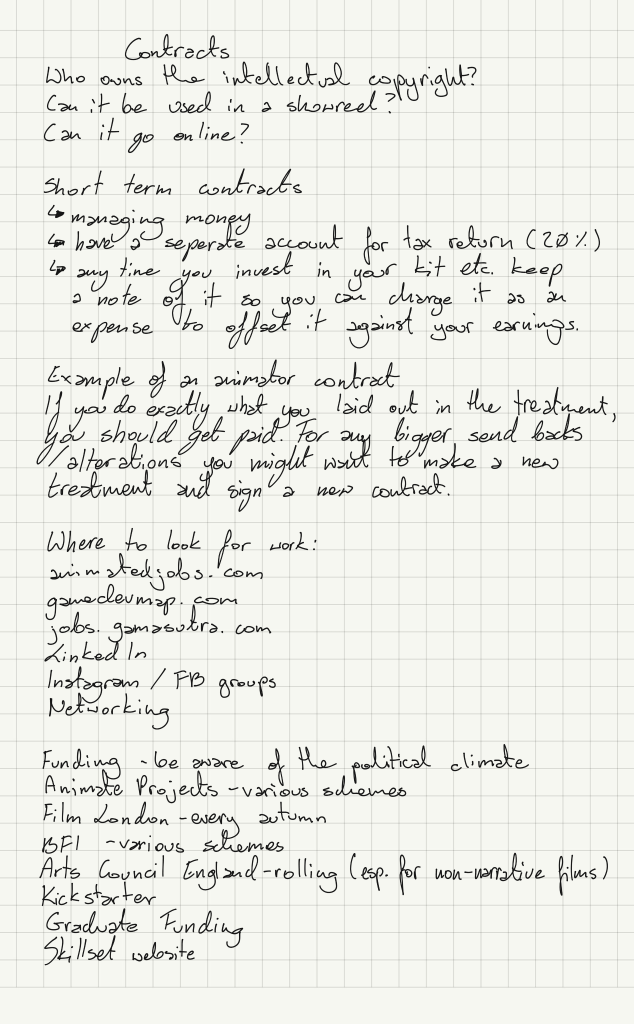 Contracts
Who owns the intellectual copyright?
Can it be used in a showreel?
Can it go online?
Short term contracts
↳ managing money
↳ have a seperate account for tax return (20%)
↳ any time you invest in your kit etc. keep
a note of it so you can charge it as an
expense to offset it against your earnings.
Example of an animator contract
If you do exactly what you laid out in the treatment,
you should get paid. For any bigger send backs
/alterations you might want to make a new
treatment and sign a new contract.
Where to look for work:
animatedjobs.com
gamedevmap.com
jobs.gamasutra.com
Linked In
Instagram / FB groups
Networking
Funding - be aware of the political climate
Animate Projects - various schemes
Film London - every autumn
BFI - various schemes
Arts Council England - rolling (esp. for non-narrative films)
Kickstarter
Graduate Funding
Skillset website